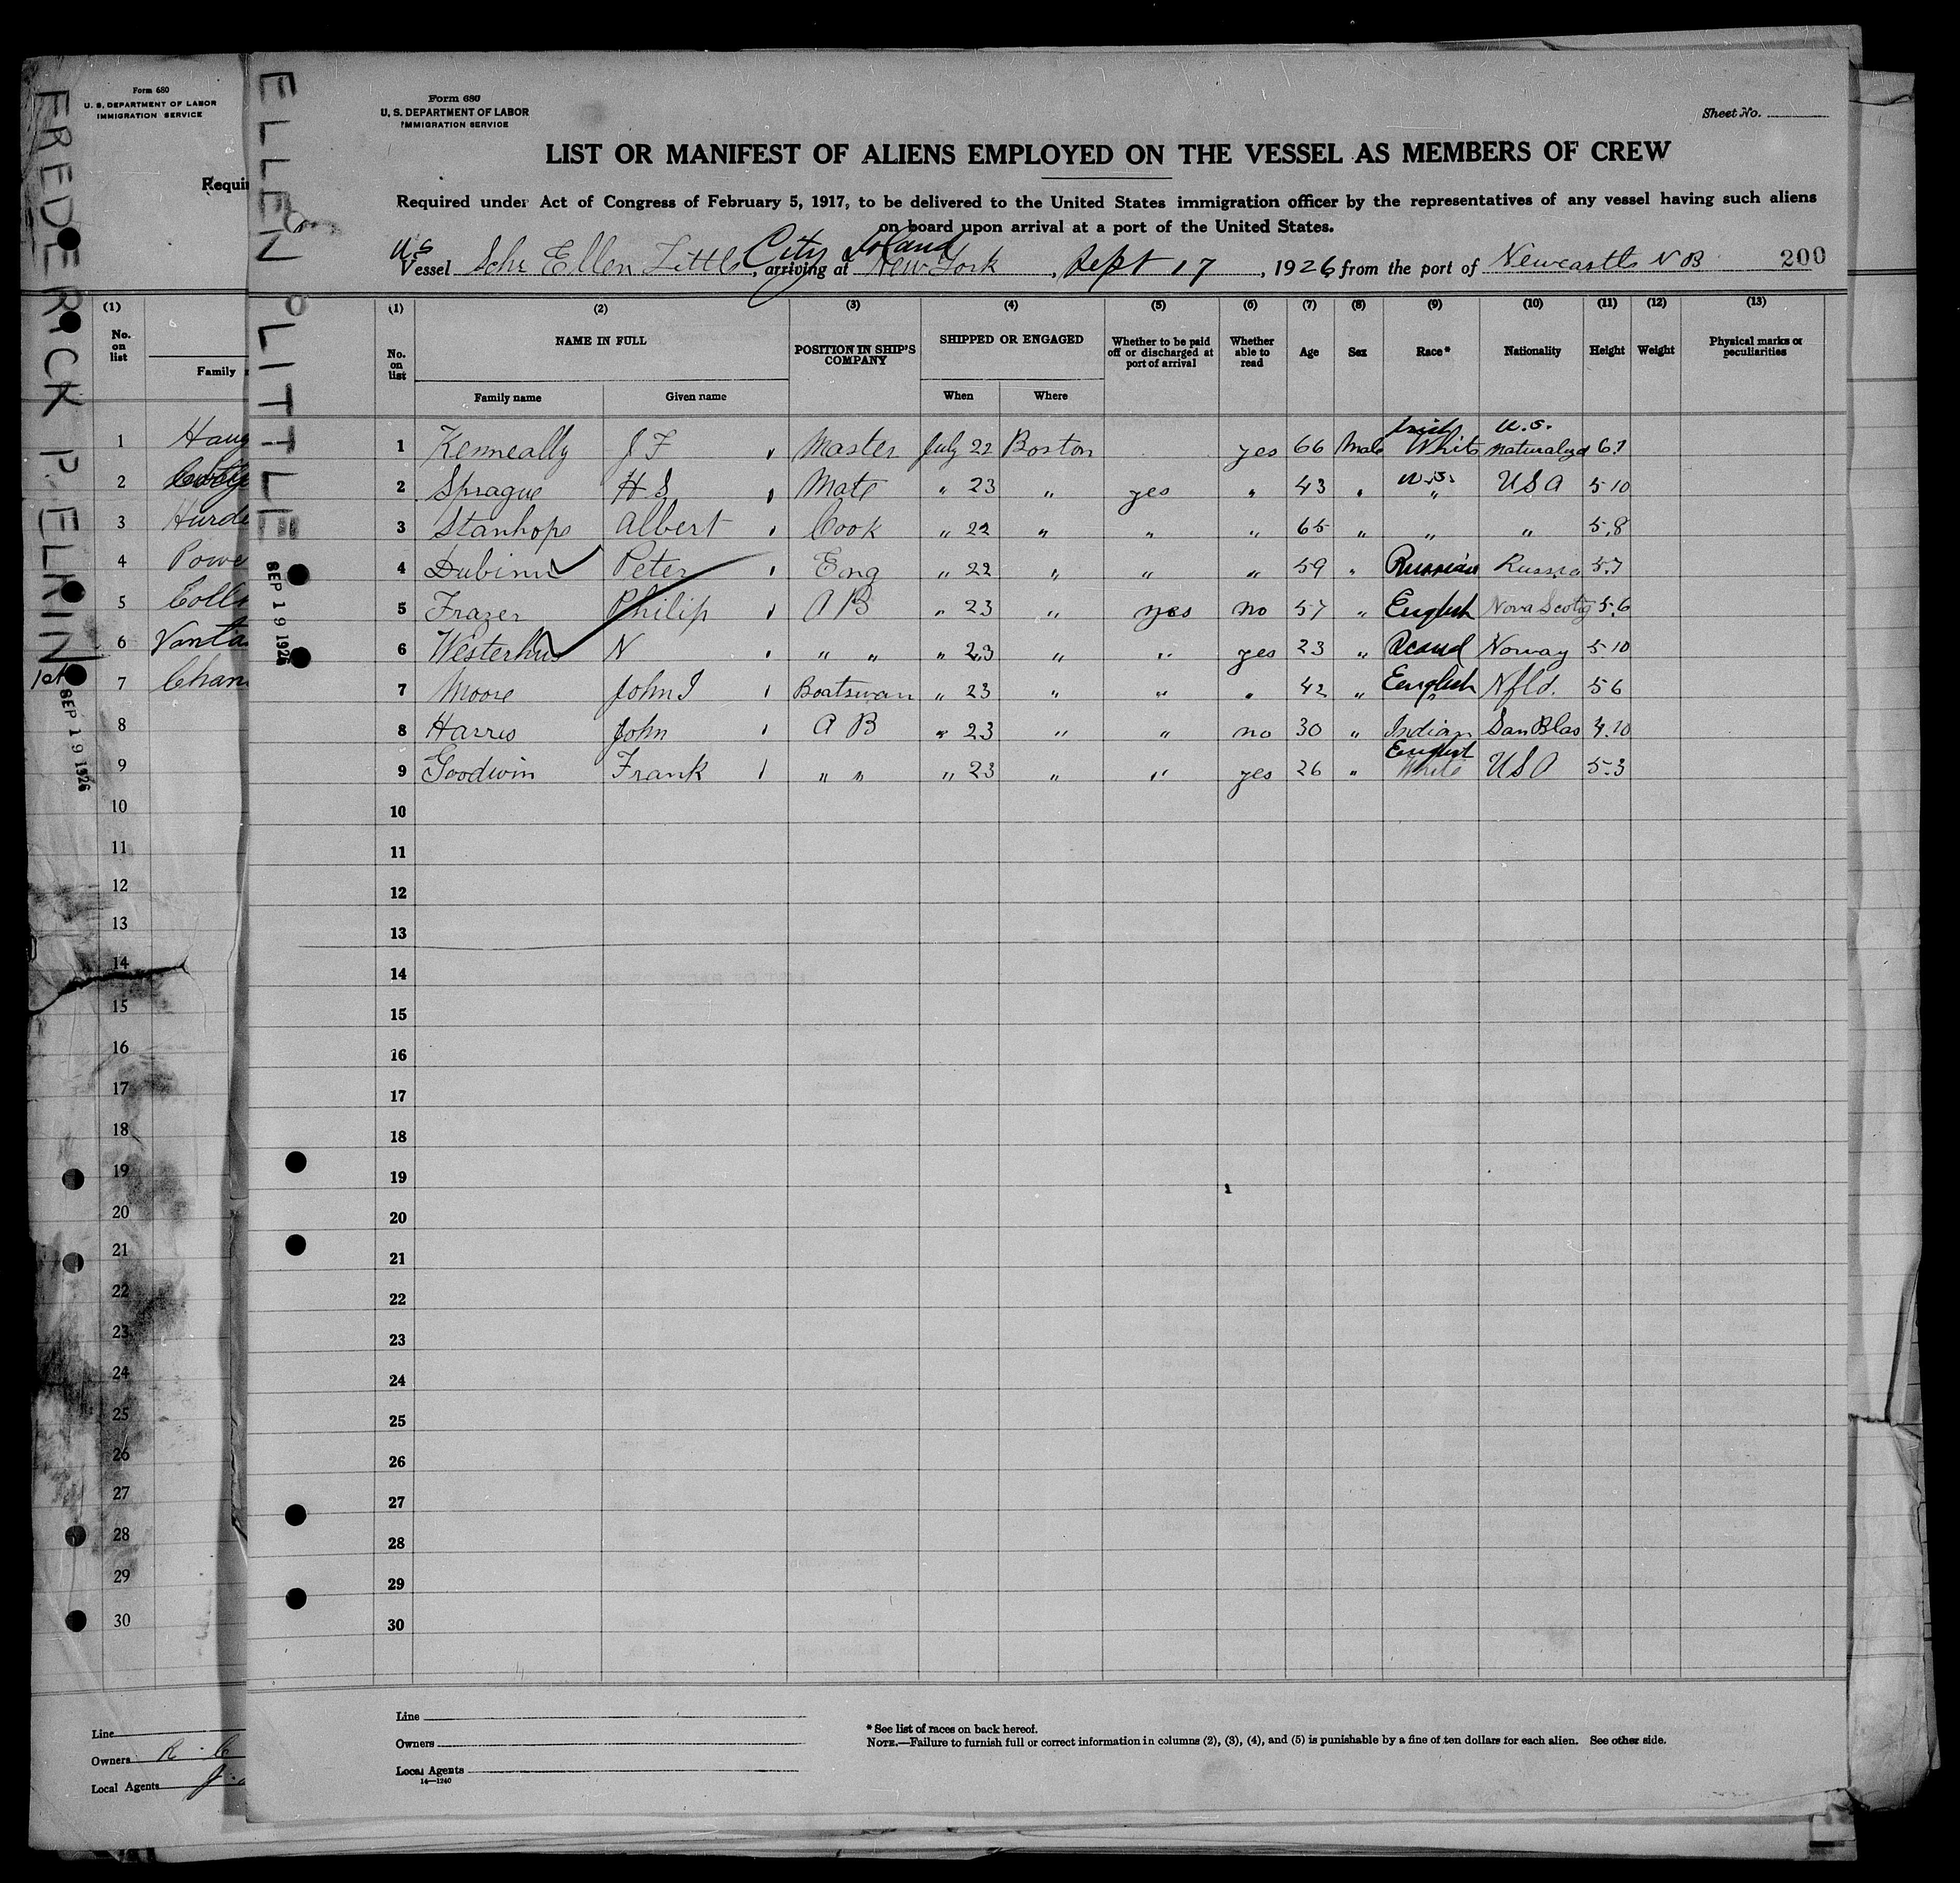 Form 680
U. S. DEPARTMENT OF LABOR
IMMIGRATION SERVICE
FREDERICK P. ELKIN
SEP 19 1926
(1)
No. on list
Family
1
2
3 Hurde
4 Powe
5 Coll
6 Vanta
7 Chan
8
9
10
11
12
13
14
15
16
17
18
19
20
21
22
23
24
25
26
27
28
29
30
Line
Owners
Local Agents
ELLEN LITTLE
SEP 19 1926
Form 680
U. S. DEPARTMENT OF LABOR
IMMIGRATION SERVICE
Sheet No.
LIST OR MANIFEST OF ALIENS EMPLOYED ON THE VESSEL AS MEMBERS OF CREW
Required under Act of Congress of February 5, 1917, to be delivered to the United States immigration officer by the representatives of any vessel having such aliens
on board upon arrival at a port of the United States.
U.S City Island
Vessel Schr Ellen Little, arriving at New York, Sept 17, 1926, from the port of Newcastle NB 200
(1) (2) (3) (4) (5) (6) (7) (8) (9) (10) (11) (12) (13)
No. on list NAME IN FULL POSITION IN SHIP'S COMPANY SHIPPED OR ENGAGED Whether to be paid off or discharged at port of arrival Whether able to read Age Sex Race* Nationality Height Weight Physical marks or peculiarities
Family name Given name When Where
Irish U.S.
1 Kenneally J F Master July 22 Boston yes 66 Male White naturalized 6.1
U.S.
2 Sprague H.S. Mate " 23 " yes " 43 " " USA 5 10
3 Stanhope Albert Cook " 22 " " " 65 " " " 5.8
4 Dubinn Peter Eng " 22 " " " 59 " Russian Russia 5.7
5 Frazer Philip A B " 23 " yes no 57 " English Nova Scotia 5.6
6 Westerhus N " " " 23 " " yes 23 " Scand Norway 5.10
7 Moore John J Boatswan " 23 " " " 42 " English Nfld. 5 6
8 Harris John A B " 23 " " no 30 " Indian San Blas 4.10
English
9 Goodwin Frank " " " 23 " " yes 26 " White USA 5.3
10
11
12
13
14
15
16
17
18
19
20
21
22
23
24
25
26
27
28
29
30
Line
Owners
Local Agents
14—1240
* See list of races on back hereof.
NOTE.—Failure to furnish full or correct information in columns (2), (3), (4), and (5) is punishable by a fine of ten dollars for each alien. See other side.